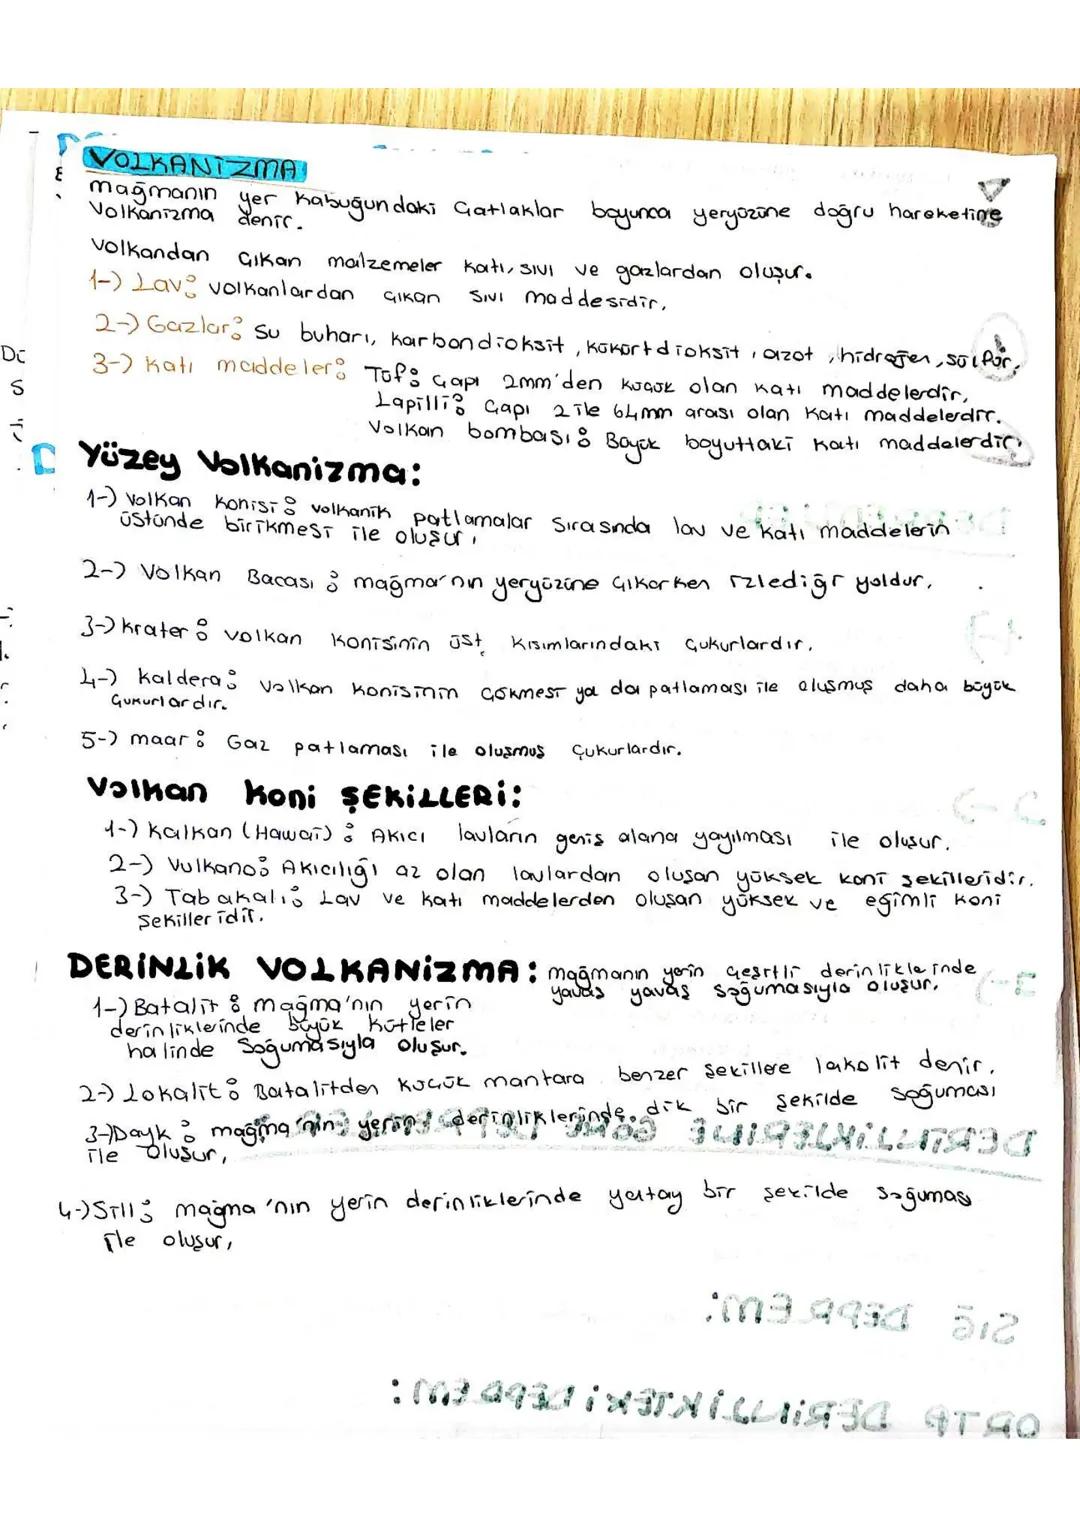 VOLKANİZMA
mağmanın yer kabuğundaki Çatlaklar boyunca yeryüzüne doğru hareketine
Volkanizma denir.
Volkandan Çıkan malzemeler katı, sıvı ve gazlardan oluşur.
1-) Lav: volkanlardan çıkan sıvı maddesidir.
2-) Gazlar: su buharı, karbondioksit, kükürtdioksit, azot, hidrojen, sülfür.
3-) Katı maddeler: Tüf: Çapı 2mm'den küçük olan katı maddelerdir.
Lapilli: Çapı 2 ile 64mm arası olan katı maddelerdir.
Volkan bombası: Büyük boyuttaki katı maddelerdir.
Yüzey Volkanizma:
1-) Volkan Konisi: volkanik patlamalar sırasında lav ve katı maddelerin
üstünde birikmesi ile oluşur.
2-) Volkan Bacası: mağma'nın yeryüzüne çıkarken izlediği yoldur.
3-) Krater: volkan konisinin üst kısımlarındaki çukurlardır.
4-) Kaldera: Volkan konisinin çökmesi ya da patlaması ile oluşmuş daha büyük
çukurlardır.
5-) maar: Gaz patlaması ile oluşmuş Çukurlardır.
Volkan Koni ŞEKİLLERİ:
1-) Kalkan (Hawai): Akıcı lavların geniş alana yayılması ile oluşur.
2-) Vulkano: Akıcılığı az olan lavlardan oluşan yüksek koni şekilleridir.
3-) Tabakalı: Lav ve katı maddelerden oluşan yüksek ve eğimli koni
şekilleridir.
DERİNLİK VOLKANİZMA: mağmanın yerin çeşitli derinliklerinde
yavaş yavaş soğumasıyla oluşur.
1-) Batalit: mağma'nın yerin
derinliklerinde büyük kütleler
halinde soğumasıyla oluşur.
2-) Lokalit: Batalitden küçük mantara benzer şekillere lakolit denir.
3-) Dayk: mağma'nın yerin derinliklerinde dik bir şekilde soğuması
ile oluşur.
4-) Sill: mağma'nın yerin derinliklerinde yatay bir şekilde soğuması
ile oluşur.